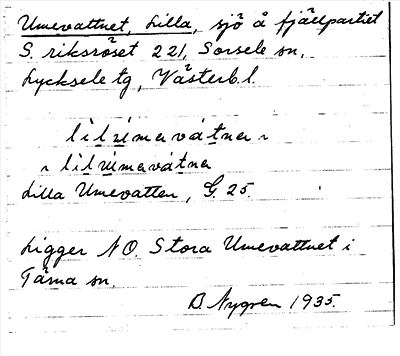 Umevattnet, Lilla, sjö å fjällpartiet
S. riksröset 221, Sorsele sn,
Lycksele tg, Västerb. l.
lìlʉ́mavátnər
lìlʉ́mavátnə
Lilla Umevatten, G. 25.
Ligger NO. Stora Umevattnet i
Tärna sn.
B. Nygren 1935.